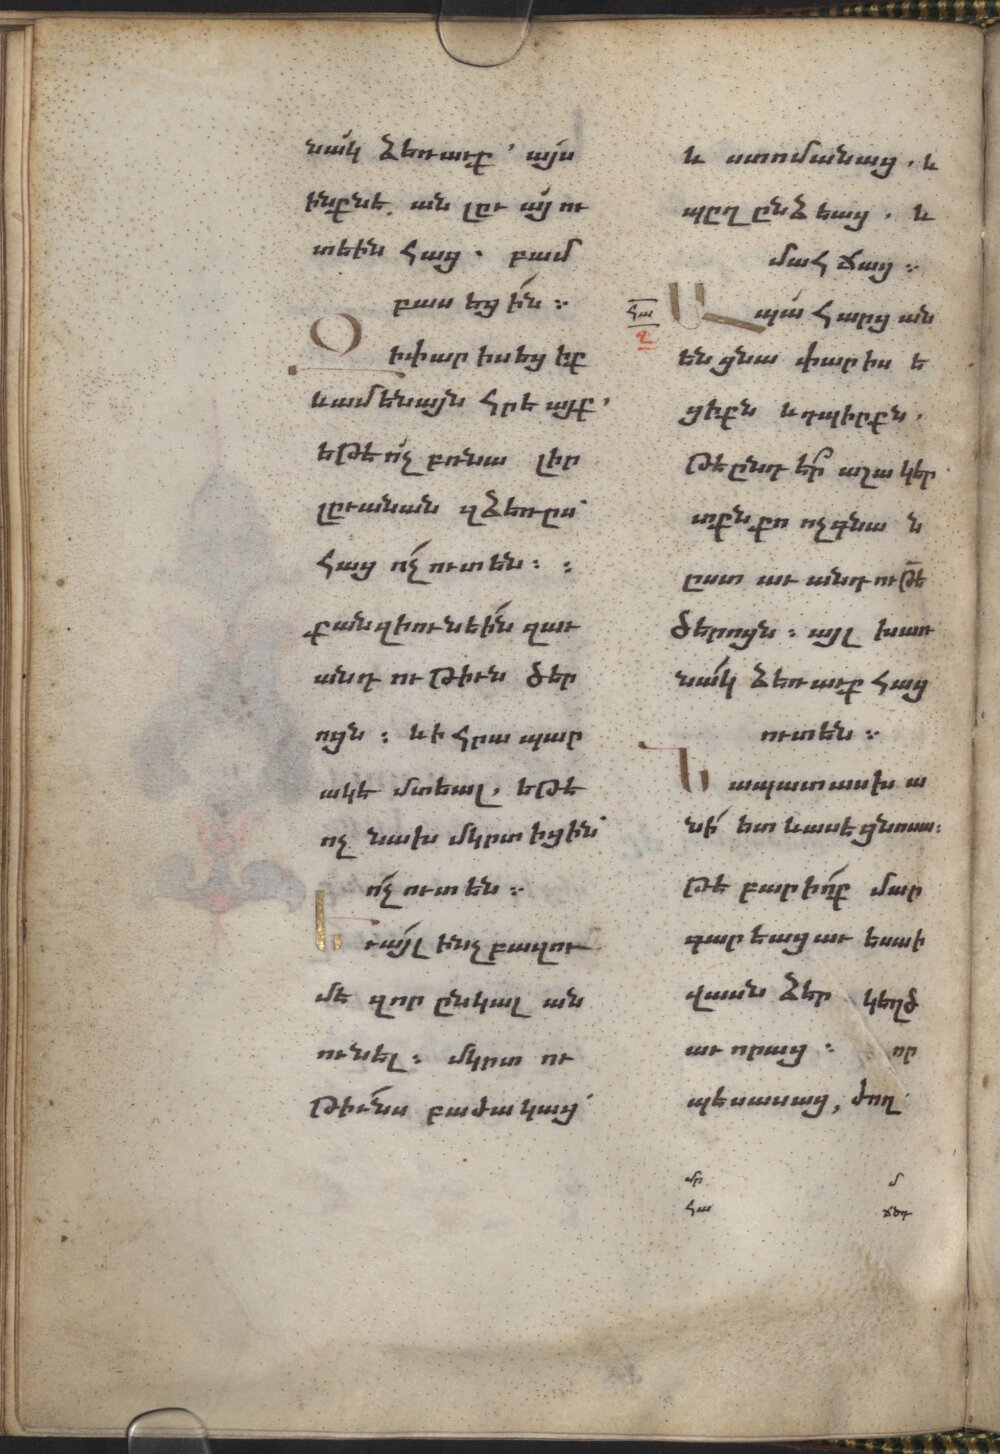 նակ ձեռաւք՝ այս
ինքնէ. ան լըւ այ ու
տէին հաց. բամ
բաս եցին։
Օի փարիսեցիք
ևամենայն հրեայք՝
եթե ոչ բռնա լիր
լըւանան զձեռըս՝
հաց ոչ ուտեն։
քանզիունեին զաւ
անդ ութիւն ծեր
ոցն։ ևի հրա պար
ակէ մտեալ. եթե
ոչ նախ մկրտիցին՝
ոչ ուտեն։
Եւայլ ինչ բազու
մե զոր ընկալ ան
ունել։ մկրտ ու
թիւնս բաժակաց՝
և ստոմանաց. և
պըղ ընձեաց. և
մահ ճաց։
հա
Ապա հարց ան
է
ենցնա փարիս ե
ցիքն ևդպիրքն.
թեընդ էր աշակեր
տքն քո ոչգնա ն
ըստ աւ անդութե
ծերոցն։ այլ խառ
նակ ձեռաւք հաց
ուտեն։
Նապատասխ ա
նի ետ ևասէցնոսա։
թէ բարիոք մար
գարեացաւ եսաի
վասն ձեր կեղծ
աւորաց։ որ
պեսասաց, ժող
մր մ
հա ճծդ